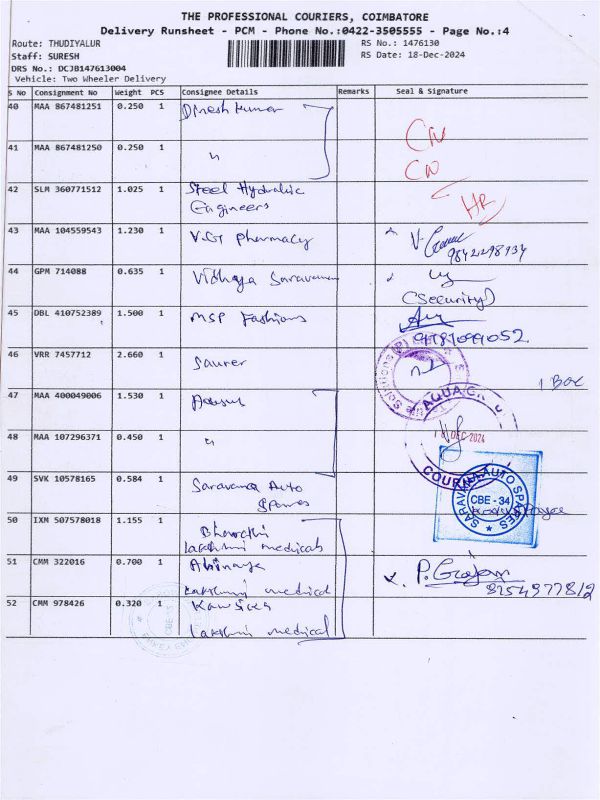 THE PROFESSIONAL COURIERS, COIMBATORE
Delivery Runsheet - PCM - Phone No.:0422-3505555 - Page No.:4
Route: THUDIYALUR RS No.: 1476130
Staff: SURESH RS Date: 18-Dec-2024
DRS No.: DCJB147613004
Vehicle: Two Wheeler Delivery
S No Consignment No Weight PCS Consignee Details Remarks Seal & Signature
40 MAA 867481251 0.250 1 Dinesh kumar
CN
41 MAA 867481250 0.250 1 "
CN
42 SLM 360771512 1.025 1 Steel Hydralic
Engineers
HR
43 MAA 104559543 1.230 1 V.G.T pharmacy
9842298934
44 GPM 714088 0.635 1 Vidhaya Saravanan
(Security)
45 DBL 410752389 1.500 1 MSP Fashions
46 VRR 7457712 2.660 1 Saurer
1 Box
47 MAA 400049006 1.530 1
AQUA
48 MAA 107296371 0.450 1 "
DEC 2024
49 SVK 10578165 0.584 1 Saravana Auto
Spares
SARAVANA AUTO SPARES
CBE - 34
50 IXM 507578018 1.155 1 Bharathi
Lakshmi medicals
51 CMM 322016 0.700 1 Abinaya
Lakshmi medical
P. Grajan
52 CMM 978426 0.320 1
Lakshmi medical